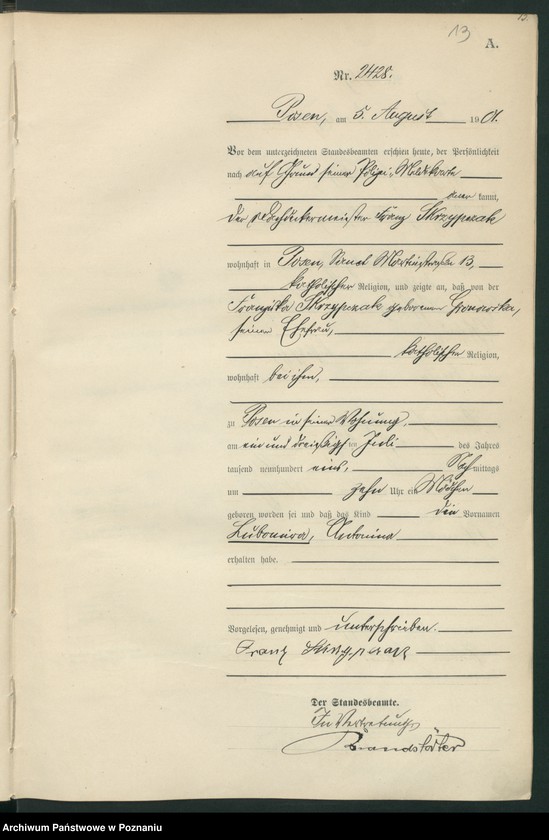 13.
13
A.
Nr. 2428.
Posen, am 5. August 1901.
Vor dem unterzeichneten Standesbeamten erschien heute, der Persönlichkeit
nach auf Grund seiner Polizei-Meldekarte
aner kannt,
der Franz Skrzypczak
wohnhaft in Posen, Sanct Martinstraße 13,
katholischer Religion, und zeigte an, daß von der
Franziska Skrzypczak geborenen
seiner Ehefrau,
katholischer Religion,
wohnhaft bei ihm,
zu Posen in seiner Wohnung,
am ein und dreißigsten Juli des Jahres
tausend neunhundert eins, Nachmittags
um zehn Uhr ein Mädchen
geboren worden sei und daß das Kind die Vornamen
Lubomira, Antonina
erhalten habe.
Vorgelesen, genehmigt und unterschrieben.
Franz Skrzypczak
Der Standesbeamte.
In Vertretung
Brandstäter
Archiwum Państwowe w Poznaniu